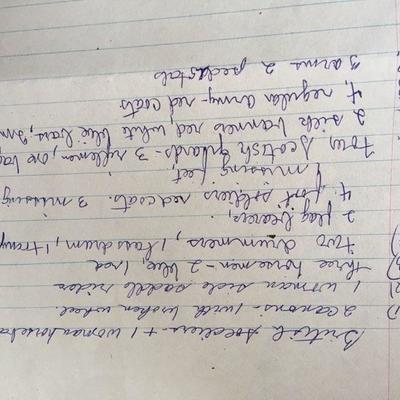 British soldiers + 1 woman
1) 2 canons - 1 with broken wheel.
2) 1 woman side saddle rider
3) three horsemen - 2 blue, 1 red
two drummers, 1 bass drum, 1
2 flag bearers,
4, foot soldiers red coats. 3 missing
1 missing feet
Four Scotish Guards - 3 riflemen, one
2 silk banners red white blue bars,
4, regular army - red coats
3 arms 2 pedestals